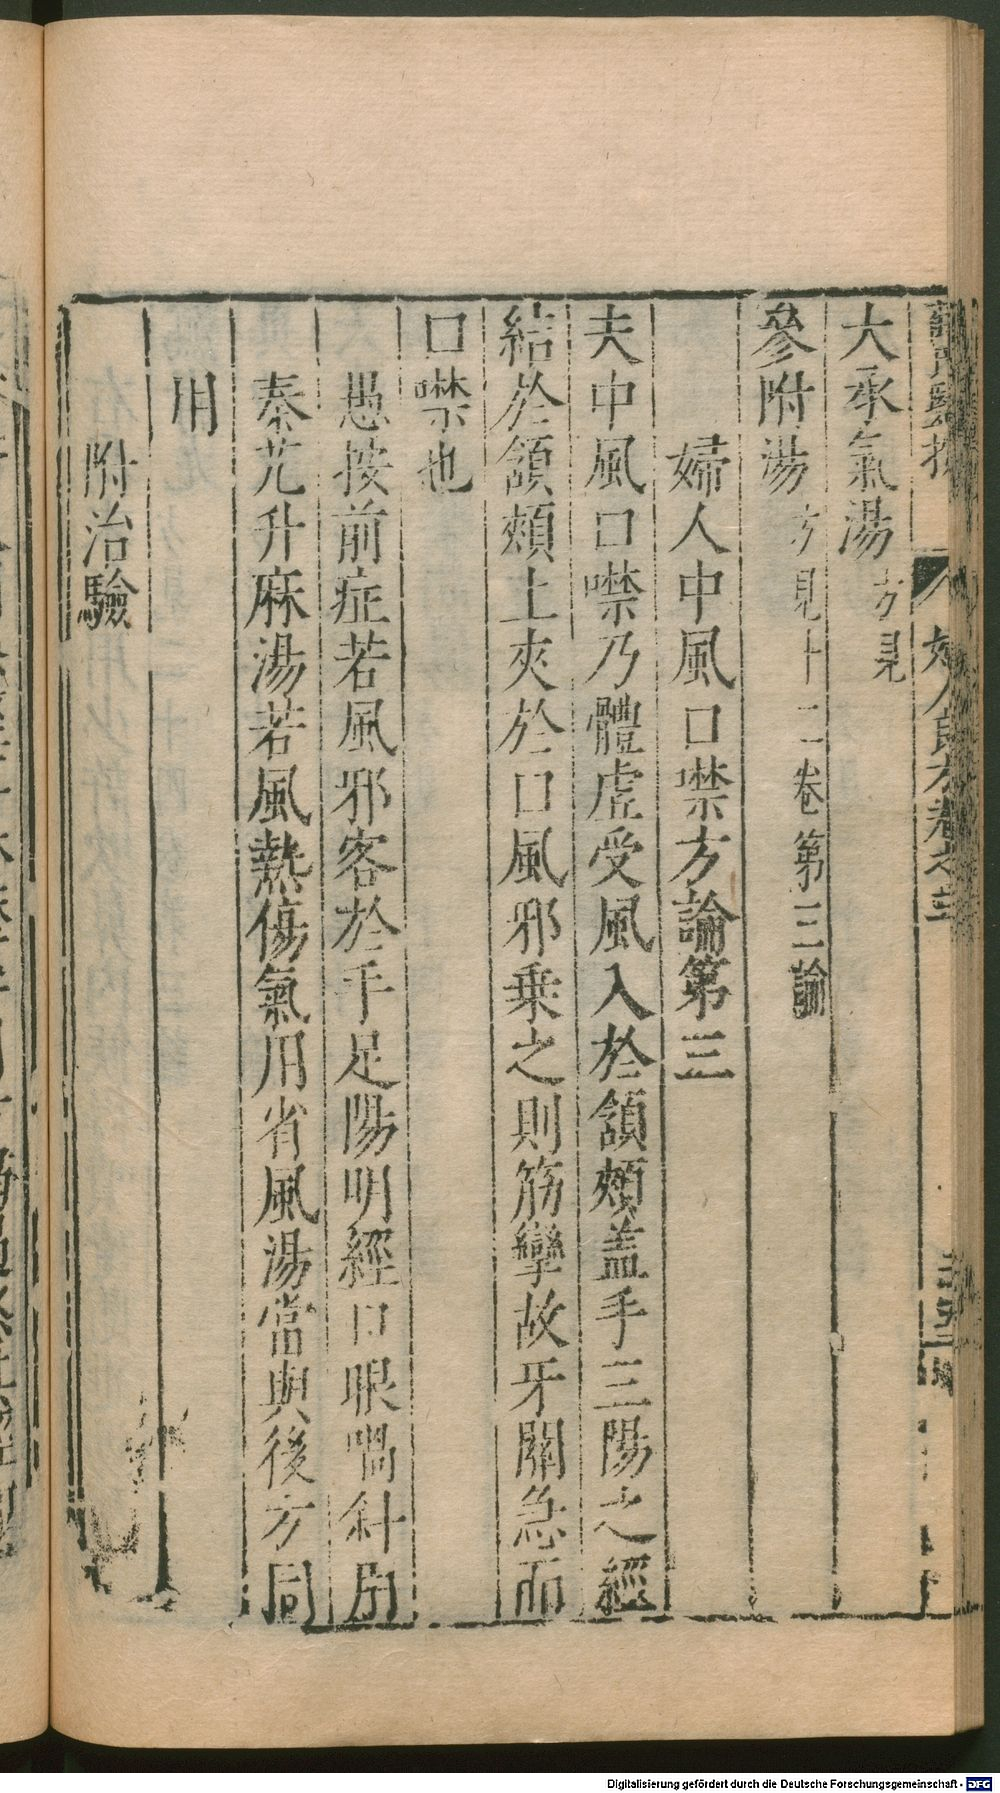 大承氣湯方見
參附湯方見十二卷第三論
婦人中風口噤方論第三
夫中風口噤乃體虛受風入於頷頰盖手三陽之經
結於頷頰上夾於口風邪乘之則筋攣故牙關急而
口噤也
愚按前症若風邪客於手足陽明經口眼喎斜用
秦艽升麻湯若風熱傷氣用省風湯當與後方同
用
附治驗
Digitalisierung gefördert durch die Deutsche Forschungsgemeinschaft - DFG